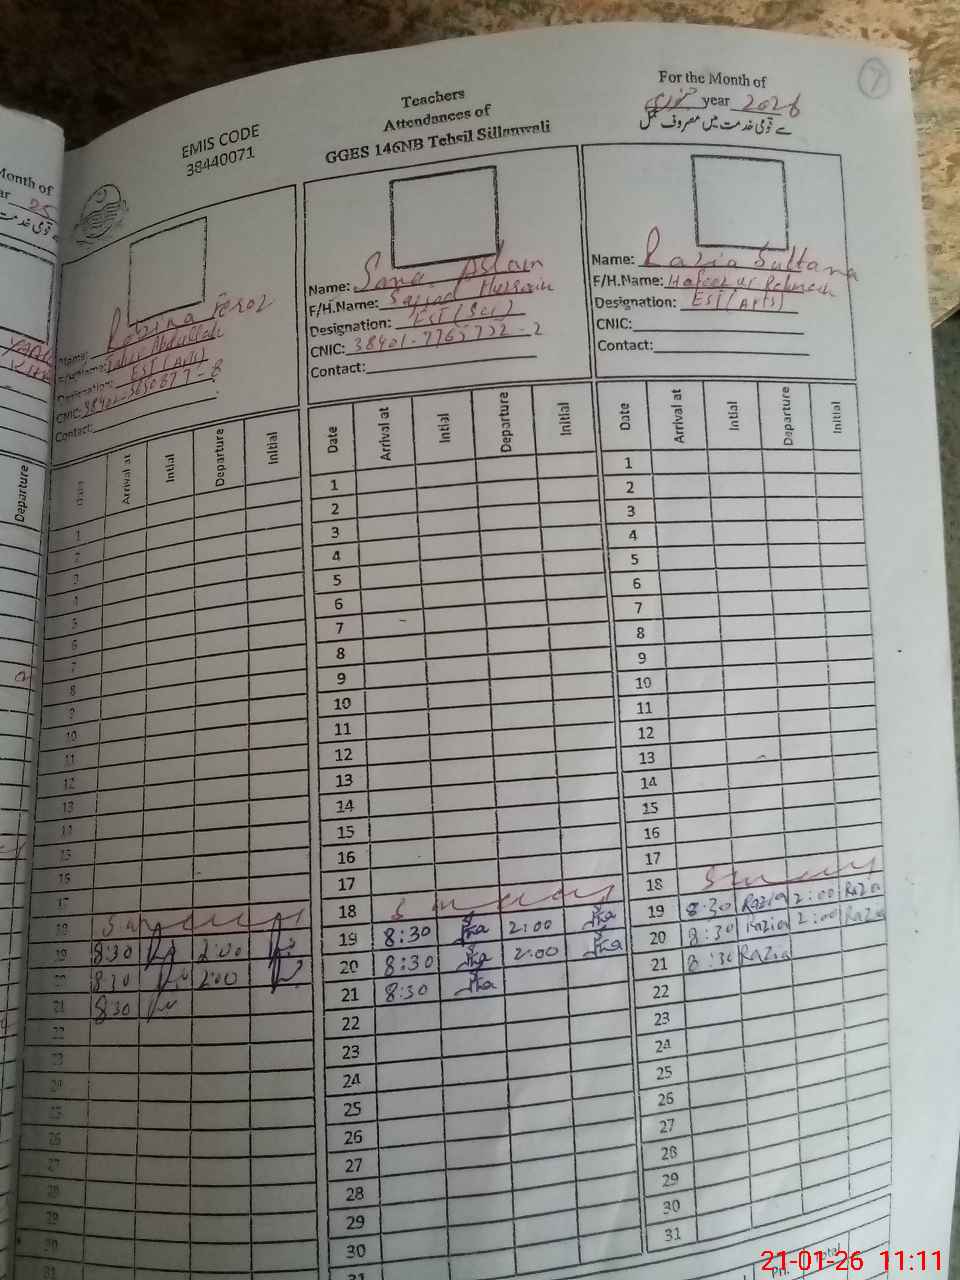 Month of
25
Departure
EMIS CODE
38440071
Teachers
Attendances of
GGES 146NB Tehsil Sillanwali
For the Month of
جنوری year 2026
7
Name: Robina Feroz
F/H.Name: Tahir Abdullah
Designation: EST (Arts)
CNIC:
Contact:
Name: Sana Aslam
F/H.Name: Sajjad Hussain
Designation: EST (Sci)
CNIC: 38401-7765722-2
Contact:
Name: Razia Sultana
F/H.Name: Hafeez ur Rehman
Designation: EST (Arts)
CNIC:
Contact:
Date Arrival at Intial Departure Initial
Date Arrival at Intial Departure Initial
Date Arrival at Intial Departure Initial
1 1 1
2 2 2
3 3 3
4 4 4
5 5 5
6 6 6
7 7 7
8 8 8
9 9 9
10 10 10
11 11 11
12 12 12
13 13 13
14 14 14
15 15 15
16 16 16
17 17 17
18 Sunday 18 Sunday 18 Sunday
19 8:30 2:00 19 8:30 2:00 19 8:30 Razia 2:00 Razia
20 8:30 2:00 20 8:30 2:00 20 8:30 Razia 2:00 Razia
21 8:30 21 8:30 21 8:30 Razia
22 22 22
23 23 23
24 24 24
25 25 25
26 26 26
27 27 27
28 28 28
29 29 29
30 30 30
31 31
Total
21-01-26 11:11